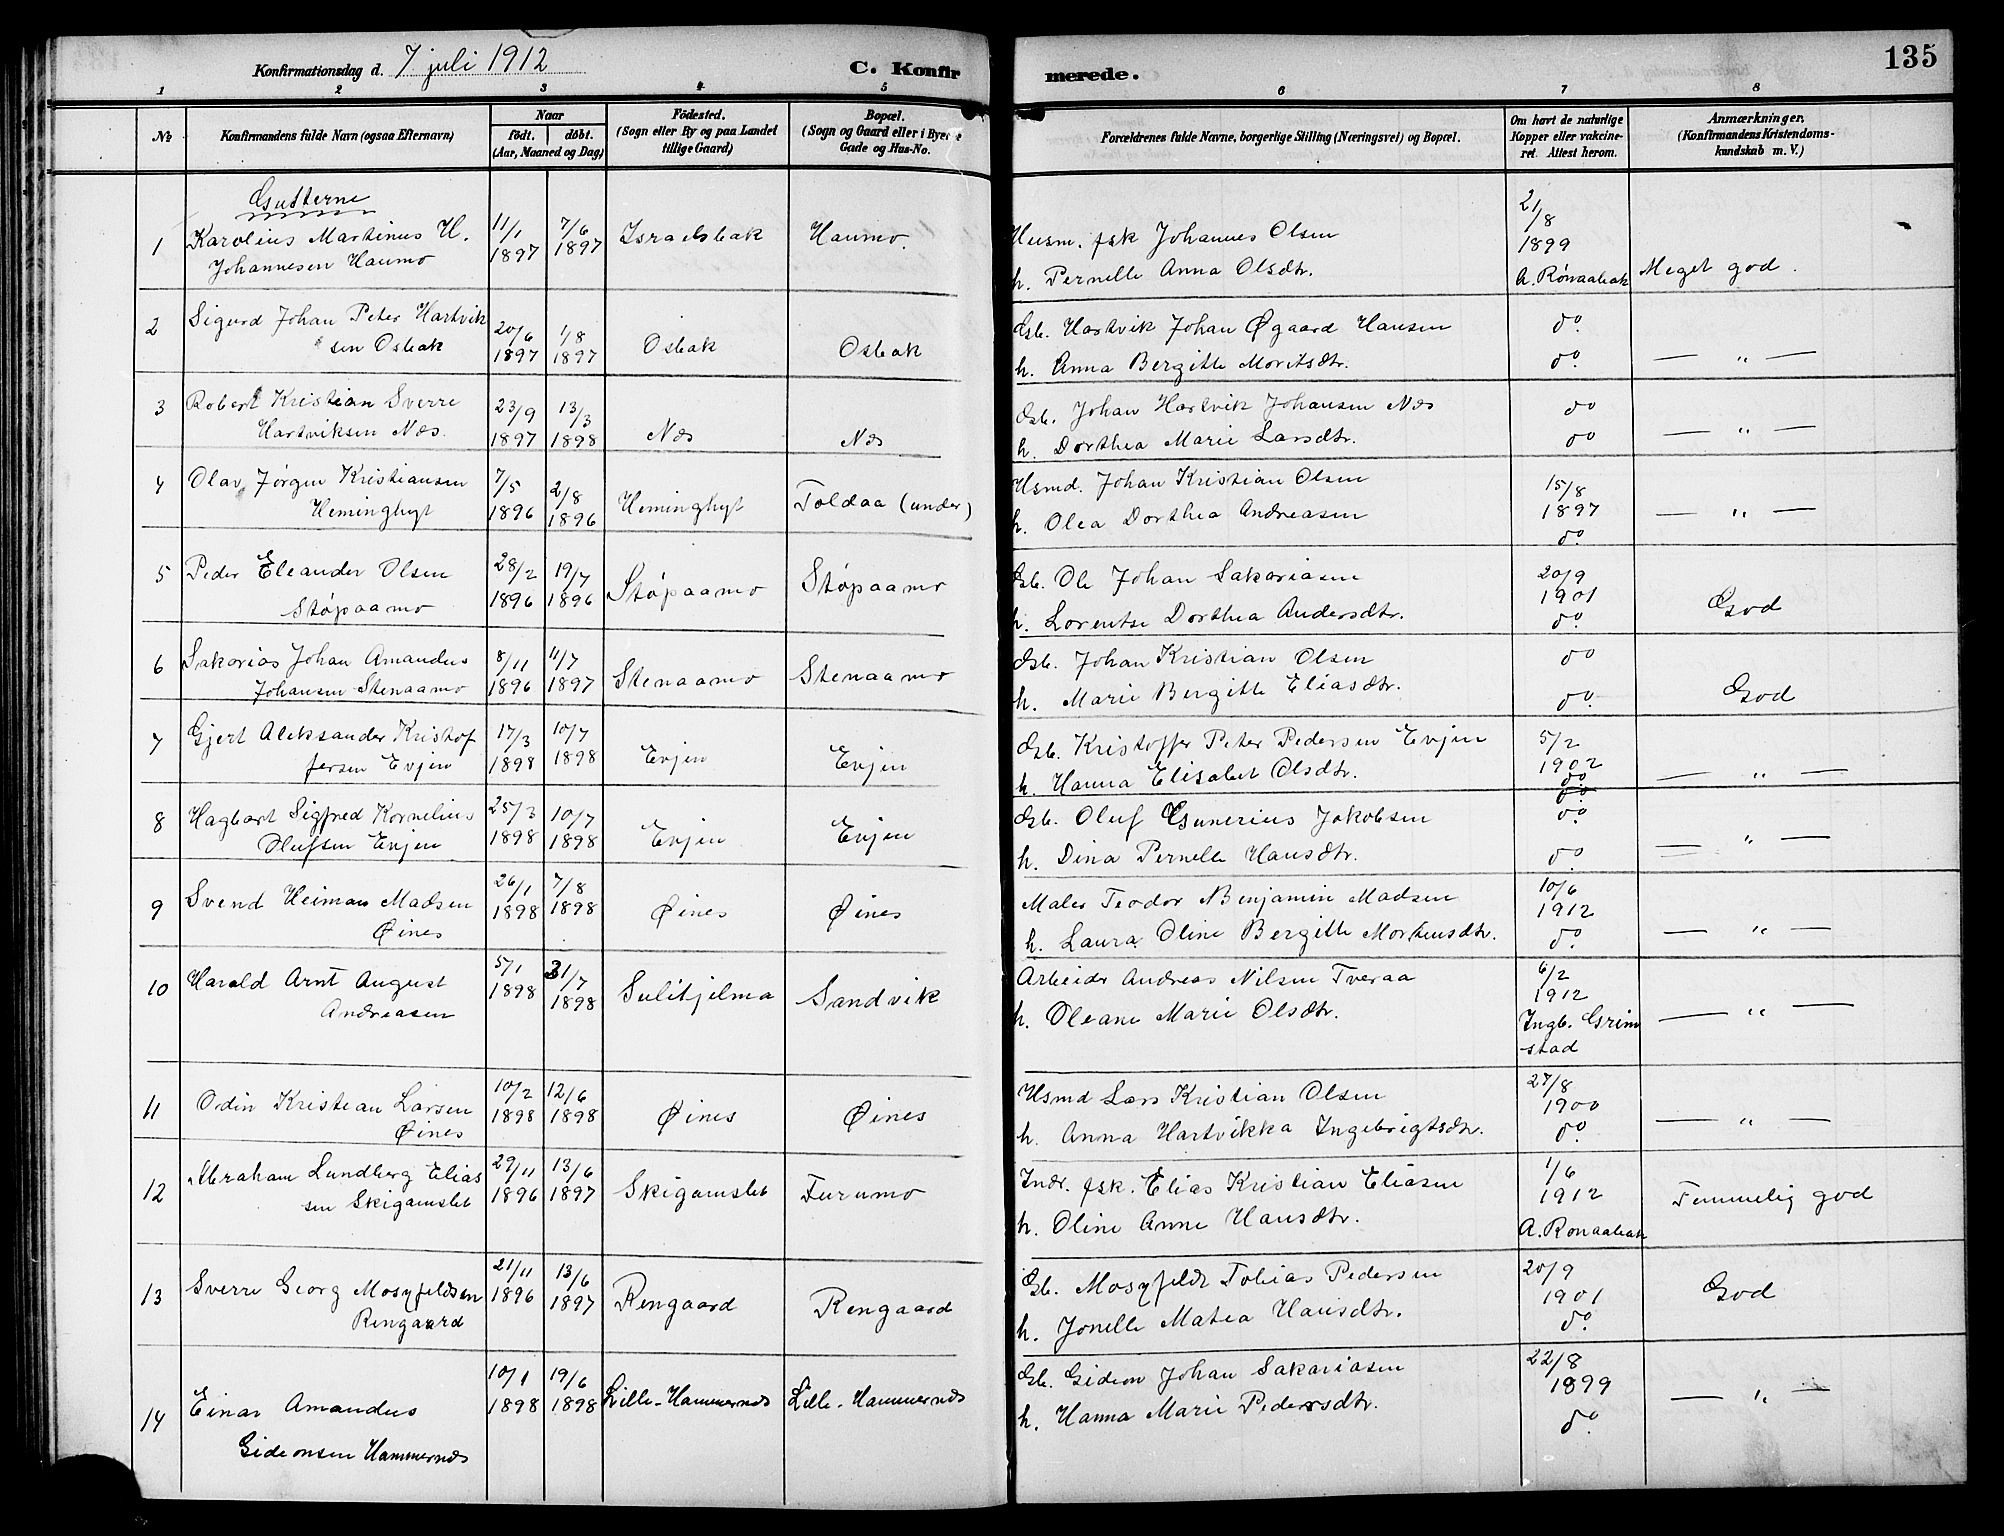 Konfirmationsdag d. 7 juli 1912
C. Konfirmerede.
135
1 2 3 4 5 6 7 8
No
Konfirmandens fulde Navn (ogsaa Efternavn)
Naar
født. døbt.
(Aar, Maaned og Dag)
Fødested.
(Sogn eller By og paa Landet
tillige Gaard)
Bopæl.
(Sogn og Gaard eller i Byerne
Gade og Hus-No.
Forældrenes fulde Navne, borgerlige Stilling (Næringsvei) og Bopæl.
Om havt de naturlige
Kopper eller vakcine-
ret. Attest herom.
Anmærkninger.
(Konfirmandens Kristendoms-
kundskab m. V.)
Gutterne
1 Karolius Martinus H. 11/1 7/6 Israelsbak Haumo. Husm. fsk Johannes Olsen 21/8
Johannesen Haumo 1897 1897 h. Pernelle Anna Olsdtr. 1899 A. Rønaabak Meget god.
2 Sigurd Johan Peter Hartvik 20/6 1/8 Osbak Osbak Gb. Hartvik Johan Øgaard Hansen do
sen Osbak 1897 1897 h. Anna Bergitte Moritsdtr. do — „ —
3 Robert Kristian Sverre 23/9 13/3 Næs Næs Gb. Johan Hartvik Johansen Næs do
Hartviksen Næs. 1897 1898 h. Dorthea Marie Larsdtr. do — „ —
4 Olav Jørgen Kristiansen 7/5 2/8 Heminghyt Toldaa (under) Husmd. Johan Kristian Olsen 15/8
Heminghyt 1896 1896 h. Olea Dorthea Andreasen 1897 do — „ —
5 Peder Eleander Olsen 28/2 19/7 Støpaamo Støpaamo Gb. Ole Johan Sakariasen 20/9
Støpaamo 1896 1896 h. Lorentse Dorthea Andersdtr. 1901 do God
6 Sakarias Johan Amandus 8/11 11/7 Stenaamo Stenaamo Gb. Johan Kristian Olsen do
Johansen Stenaamo 1896 1897 h. Marie Bergitte Eliasdtr. do God
7 Gjert Aleksander Kristof 17/3 10/7 Evjen Evjen Gb. Kristoffer Peter Pedersen Evjen 5/2
fersen Evjen 1898 1898 h. Hanna Elisabet Olsdtr. 1902 do — „ —
8 Hagbart Sigfred Kornelius 25/3 10/7 Evjen Evjen Gb. Oluf Gunerius Jakobsen do
Olufsen Evjen 1898 1898 h. Dina Pernelle Hansdtr. do — „ —
9 Svend Heiman Madsen 26/1 7/8 Øines Øines Maler Teodor Benjamin Madsen 10/6
Øines 1898 1898 h. Laura Oline Bergitte Mortensdtr. 1912 do — „ —
10 Harald Arnt August 5/1 31/7 Sulitjelma Sandvik Arbeider Andreas Nilsen Tveraa 6/2
Andreasen 1898 1898 h. Oleane Marie Olsdtr. 1912 — „ —
Ingb. Grim
stad
11 Odin Kristian Larsen 10/2 12/6 Øines Øines Husmd Lars Kristian Olsen 27/8
Øines 1898 1898 h. Anna Hartvikka Ingebrigtsdtr. 1900 do — „ —
12 Abraham Lundberg Elias 29/11 13/6 Skigamslet Furumo Indr. fsk. Elias Kristian Eliasen 1/6
sen Skigamslet 1896 1897 h. Oline Anne Hansdtr. 1912 A. Rønaabak Temmelig god
13 Sverre Georg Mosyfeldsen 21/11 13/6 Rengaard Rengaard Gb. Mosyfeldt Tobias Pedersen 20/9
Rengaard 1896 1897 h. Jonelle Matea Hansdtr. 1901 do God
14 Einar Amandus 10/1 19/6 Lille-Hammernæs Lille-Hammernæs Gb. Gideon Johan Sakariasen 22/8
Gideonsen Hammernæs 1898 1898 h. Hanna Marie Pedersdtr. 1899 do — „ —